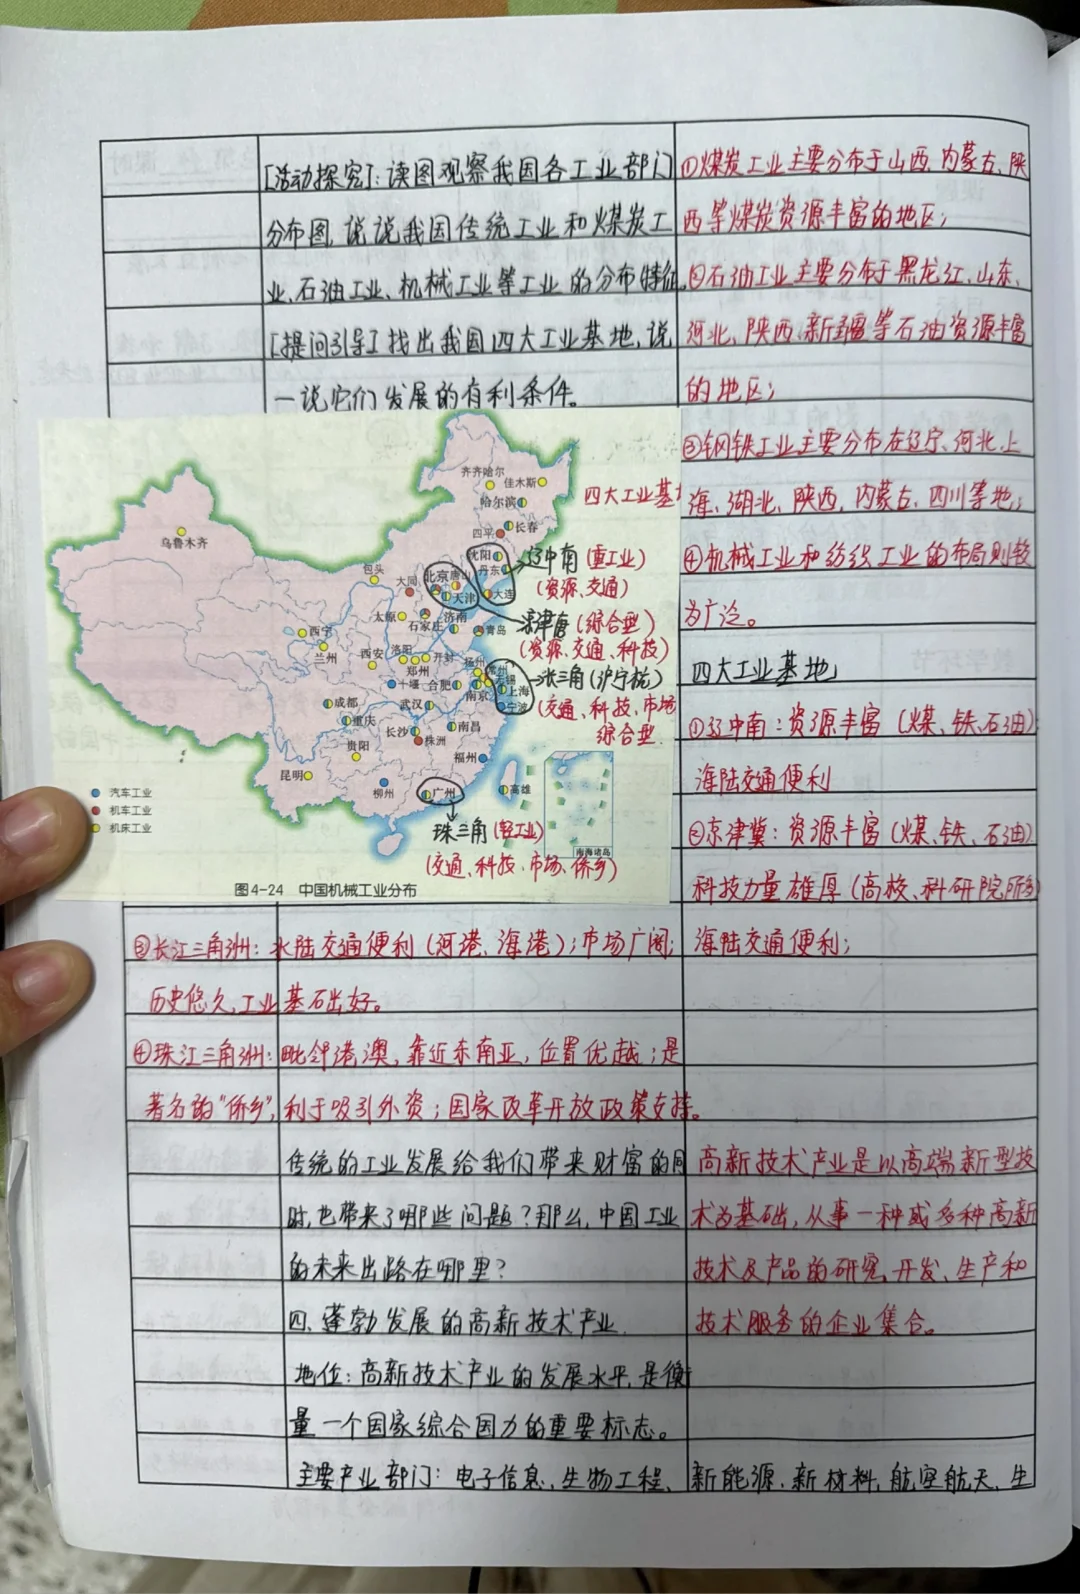 [活动探究]：读图观察我国各工业部门
分布图，说说我国传统工业和煤炭工
业、石油工业、机械工业等工业的分布特征。
[提问引导]找出我国四大工业基地，说
一说它们发展的有利条件。
①煤炭工业主要分布于山西、内蒙古、陕
西等煤炭资源丰富的地区；
②石油工业主要分布于黑龙江、山东、
河北、陕西、新疆等石油资源丰富
的地区；
③钢铁工业主要分布在辽宁、河北、上
海、湖北、陕西、内蒙古、四川等地；
④机械工业和纺织工业的布局则较
为广泛。
四大工业基地
①辽中南：资源丰富（煤、铁、石油）；
海陆交通便利
②京津冀：资源丰富（煤、铁、石油）
科技力量雄厚（高校、科研院所多）
海陆交通便利；
四大工业基
齐齐哈尔
佳木斯
哈尔滨
长春
四平
乌鲁木齐
沈阳
丹东
辽中南（重工业）
（资源、交通）
包头
大同
北京
唐山
天津
大连
京津唐（综合型）
（资源、交通、科技）
太原
石家庄
济南
青岛
西宁
兰州
西安
洛阳
郑州
开封
扬州
常州
无锡
上海
长三角（沪宁杭）
（交通、科技、市场
综合型
十堰
合肥
南京
宁波
成都
重庆
武汉
长沙
株洲
南昌
贵阳
福州
昆明
柳州
广州
高雄
珠三角（轻工业）
（交通、科技、市场、侨乡）
汽车工业
机车工业
机床工业
南海诸岛
图4-24 中国机械工业分布
③长江三角洲：水陆交通便利（河港、海港）；市场广阔；
历史悠久，工业基础好。
④珠江三角洲：毗邻港澳，靠近东南亚，位置优越；是
著名的“侨乡”，利于吸引外资；国家改革开放政策支持。
传统的工业发展给我们带来财富的同
时，也带来了哪些问题？那么，中国工业
的未来出路在哪里？
四、蓬勃发展的高新技术产业
地位：高新技术产业的发展水平，是衡
量一个国家综合国力的重要标志。
高新技术产业是以高端新型技
术为基础，从事一种或多种高新
技术及产品的研究、开发、生产和
技术服务的企业集合。
主要产业部门：电子信息、生物工程、新能源、新材料、航空航天、生